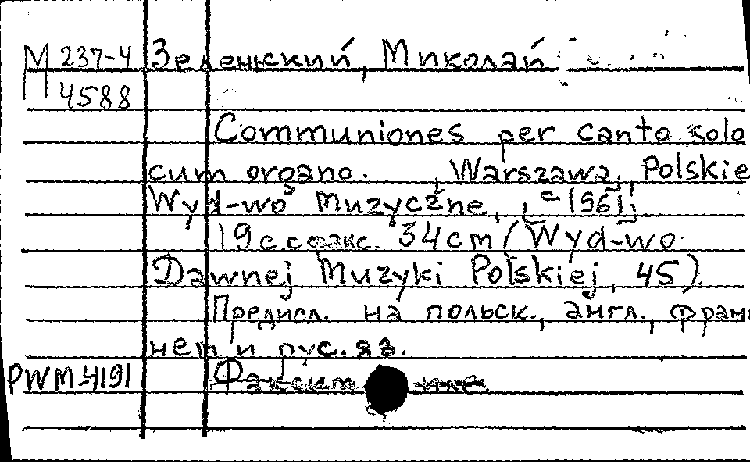 М 237-4 Зеленский, Миколай
4588
Communiones per canto solo
cum organo. Warszawa, Polskie
Wyd-wo Muzyczne, [1961].
19 с с факс. 34cm (Wyd-wo
Dawnej Muzyki Polskiej, 45)
Предисл. на польск., англ., фран
нем и рус. яз.
PWM-4191